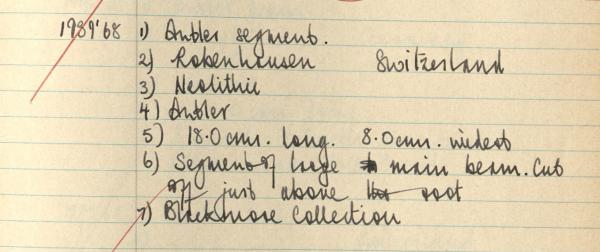 1989'68 1) Antler segment.
2) Robenhausen Switzerland
3) Neolithic
4) Antler
5) 18.0 cms. long. 8.0 cms. widest
6) Segment of large main beam. Cut
off just above root
7) Blackmore Collection